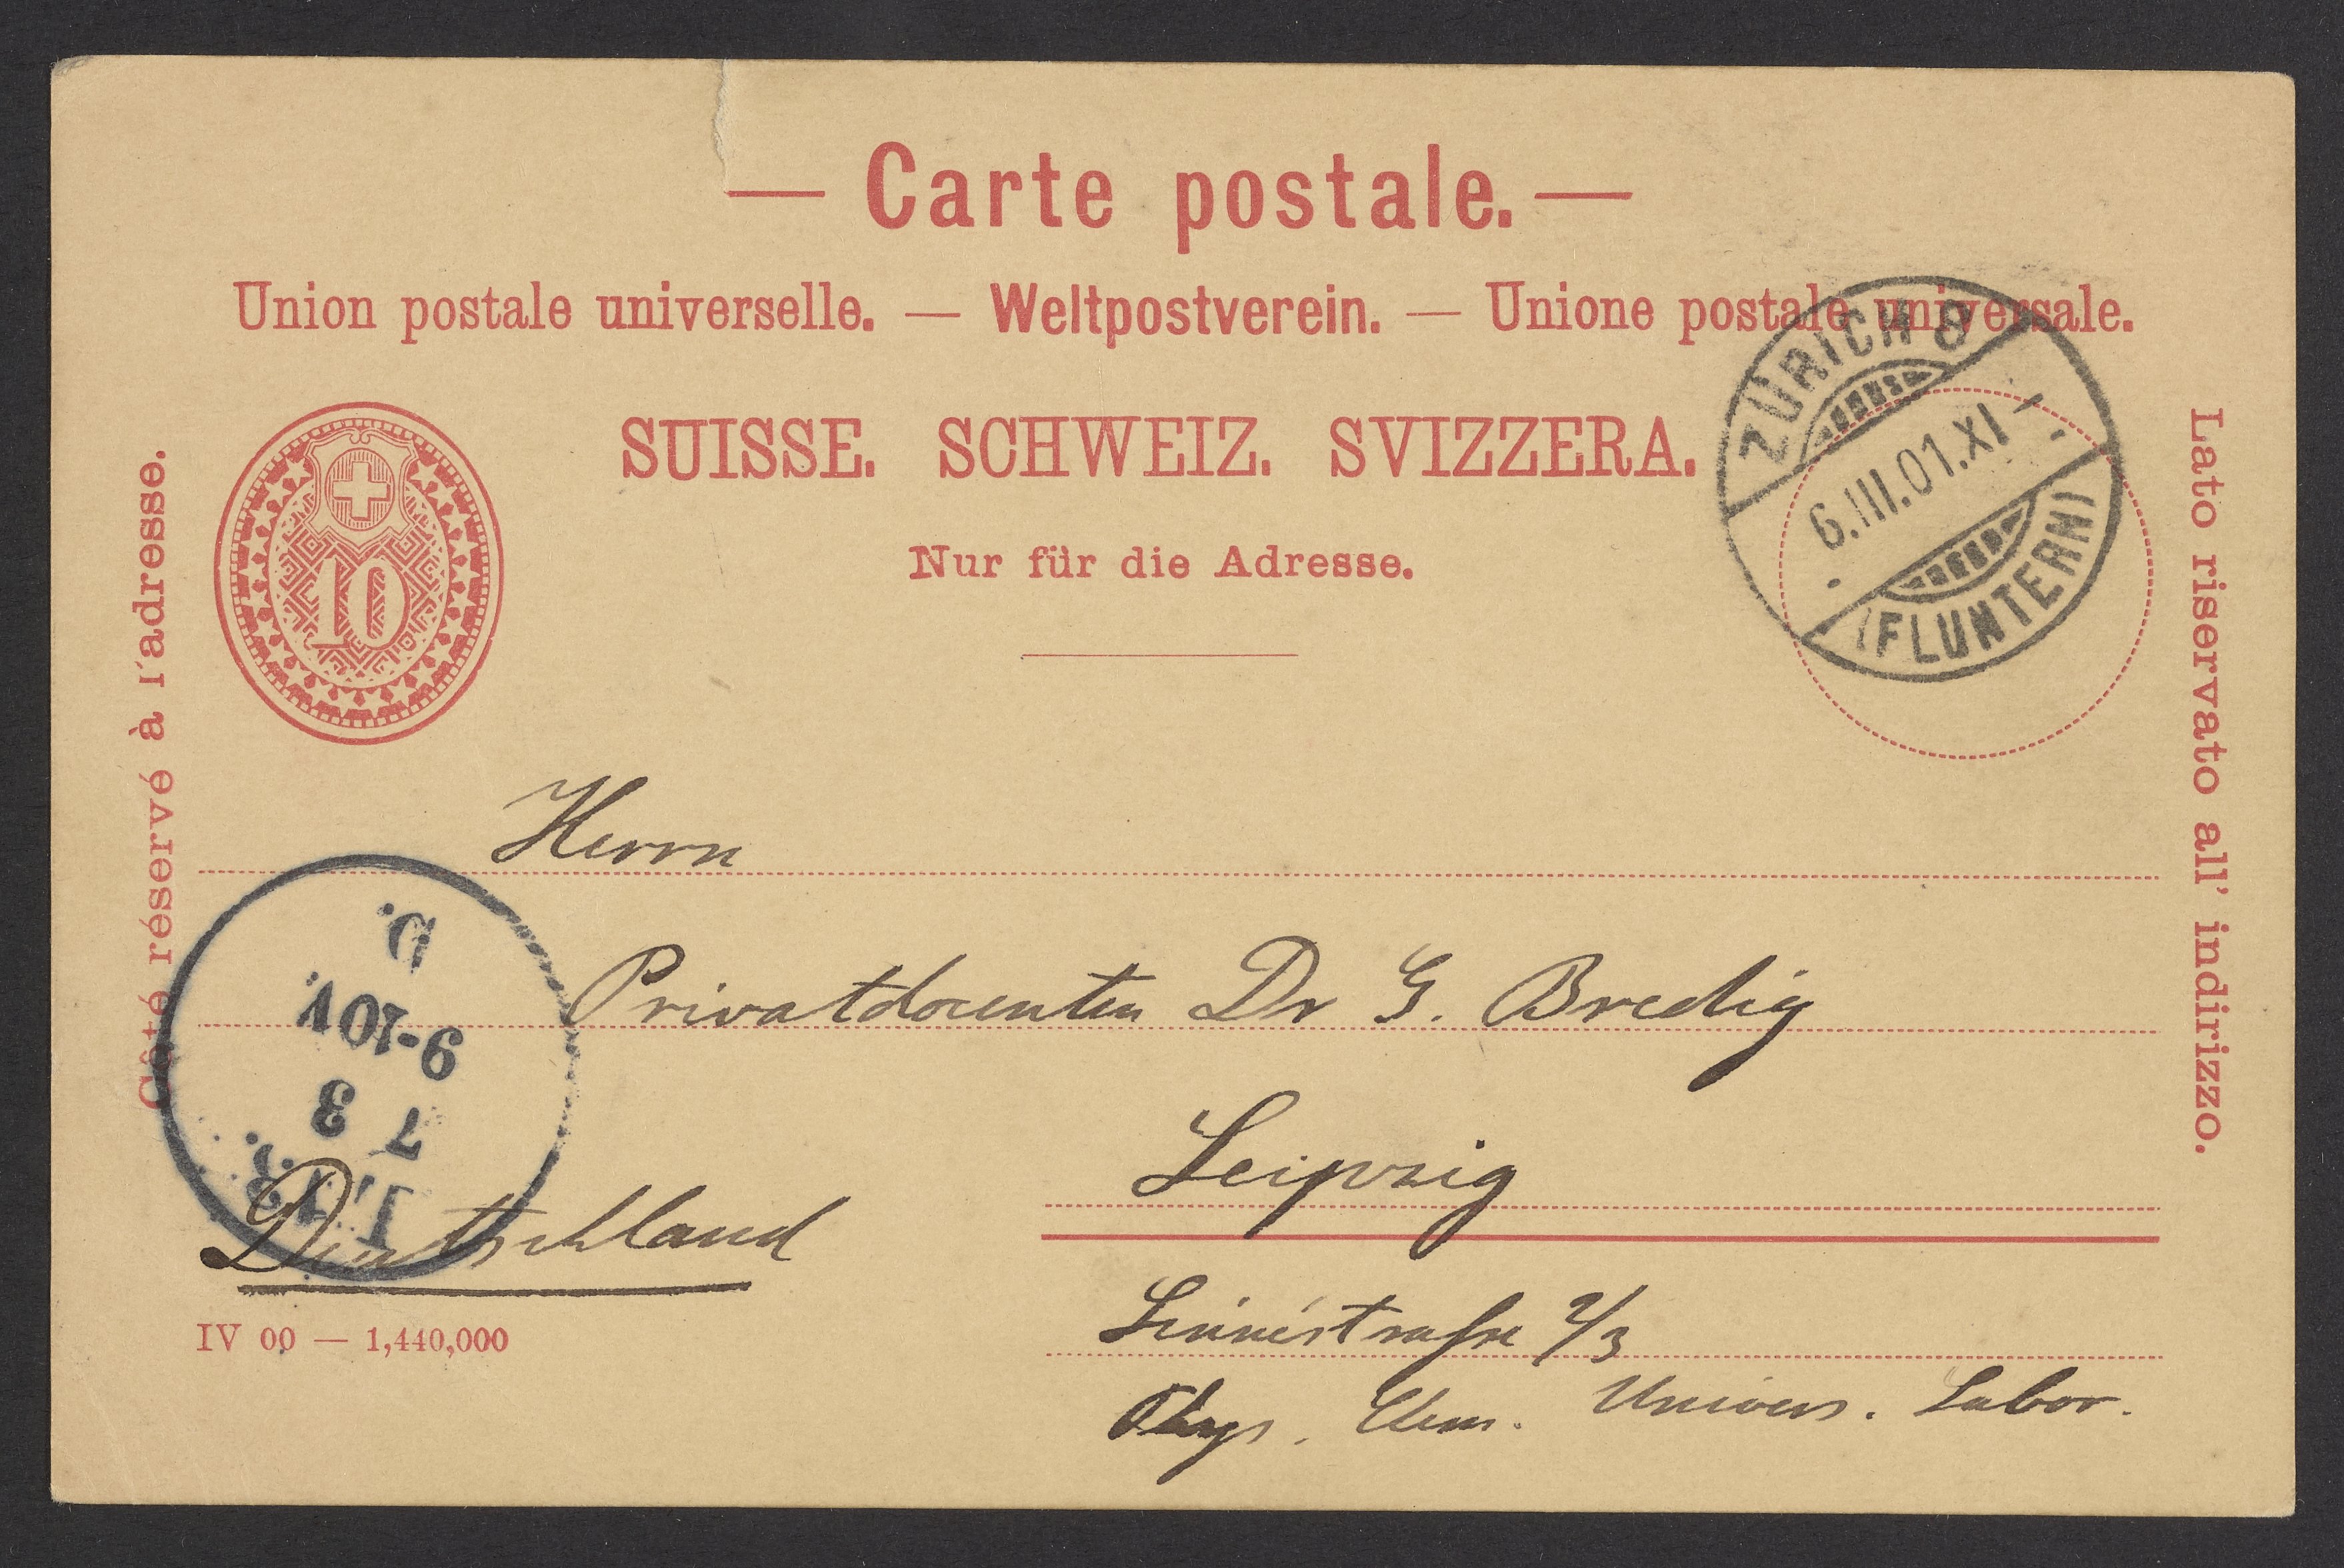 — Carte postale. —
Union postale universelle. — Weltpostverein. — Unione postale universale.
SUISSE. SCHWEIZ. SVIZZERA.
Nur für die Adresse.
10
ZÜRICH 8
6.III.01.XI
(FLUNTERN)
Côté réservé à l'adresse.
Lato riservato all' indirizzo.
Herrn
Privatdocenten Dr G. Bredig
Leipzig
Deutschland
Linnéstrasse 2/3
Phys. Chem. Univers. Labor.
IV 00 — 1,440,000
7 3
9-10V.